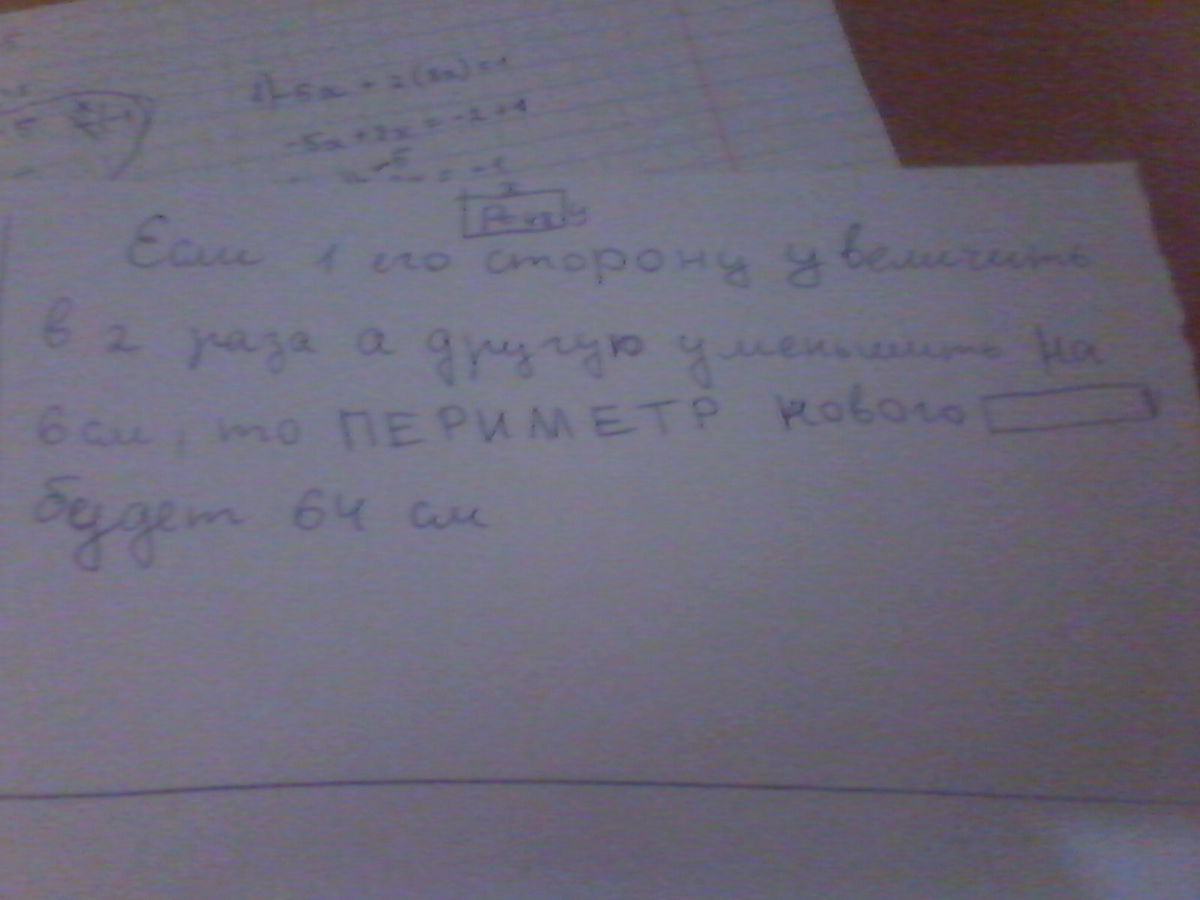 -5x + 2
= -2 + 1
Если 1 его сторону увеличить
в 2 раза а другую уменьшить на
6 см, то ПЕРИМЕТР нового
будет 64 см